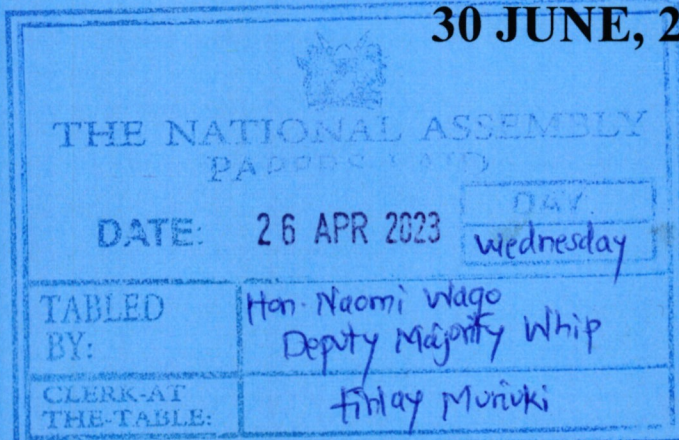 30 JUNE, 2
THE NATIONAL ASSEMBLY
PAPERS LAID
DATE: 26 APR 2023
DAY.
Wednesday
TABLED BY:
Hon. Naomi Waqo
Deputy Majority Whip
CLERK-AT THE-TABLE:
Finlay Muriuki